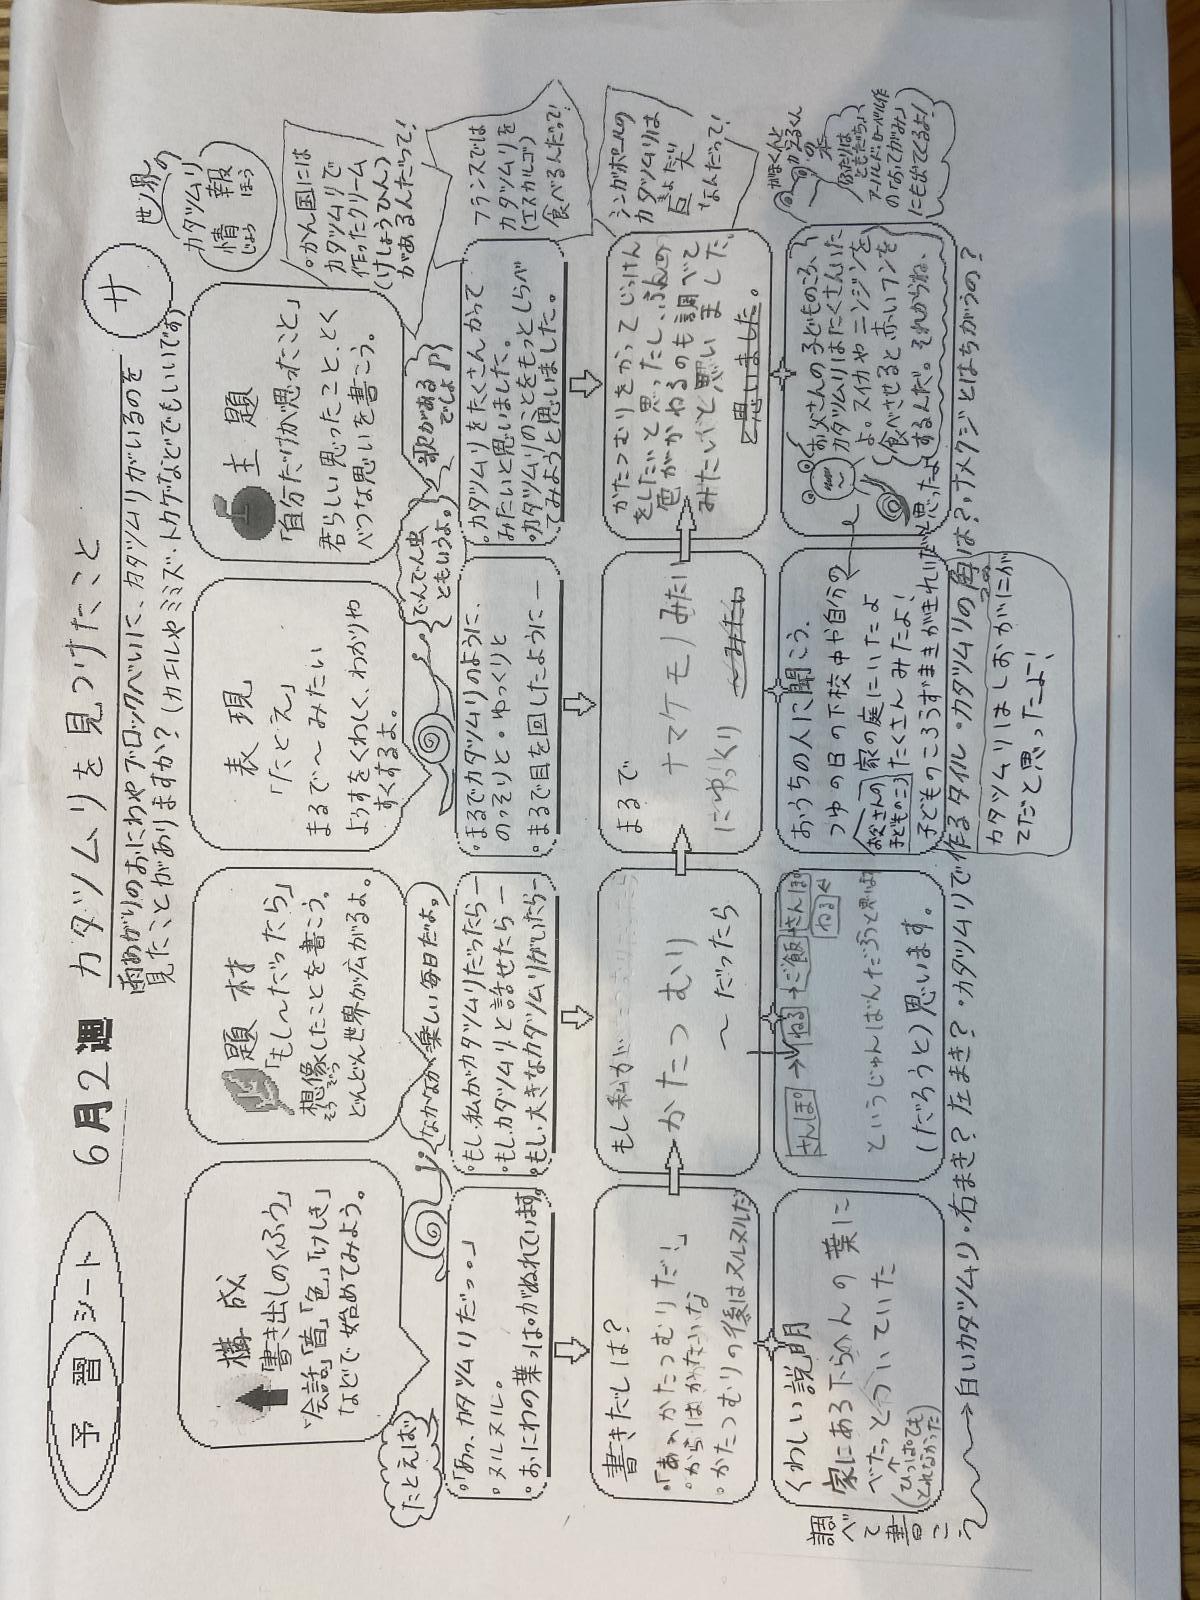 予習シート
6月2週
カタツムリを見つけたこと
サ
雨あがりのおにわやブロックべいに、カタツムリがいるのを
見たことがありますか?(カエルやミミズ・トカゲなどでもいいです)
構成
書き出しのくふう
「会話」「音」「色」「けしき」
などで始めてみよう。
題材
「もし〜だったら」
想像したことを書こう。
そうぞう
どんどん世界が広がるよ。
表現
「たとえ」
まるで〜みたい
ようすをくわしく、わかりや
すくするよ。
主題
「自分だけが思れたこと」
君らしい思ったこと、とく
べつな思いを書こう。
世界の
カタツムリ
情報
じょうほう
かん国には
カタツムリで
作ったクリーム
(けしょうひん)
があるんだって!
フランスでは
カタツムリを
(エスカルゴ)
食べるんだって!
シンガポールの
カタツムリは
きょだい
巨大
なんだって!
がまくんと
かえるくん
の本
「ふたりは
ともだち」
アーノルド・ローベル作
の「おってがみ」
にも出てくるよ!
たとえば
なかなか楽しい毎日だよ。
でんでん虫
ともいうよ。
歌がある
でしょ♪
。「あっ、カタツムリだっ。」
。ヌルヌル。
。おにわの葉っぱがぬれています。
。もし、私がカタツムリだったら—
。もし、カタツムリと話せたら—
。もし、大きなカタツムリがいたら—
。まるでカタツムリのように、
のっそりと・ゆっくりと
。まるで目を回したように—
。カタツムリをたくさんかって
みたいと思いました。
。カタツムリのことをもっとしらべ
てみようと思いました。
書きだしは?
。「あっかたつむりだ!」
。からはかたいな
。かたつむりの後はヌルヌルだ
もし私が
かたつむり
〜だったら
まるで
ナマケモノみたい
にゆっくり
〜みたい
かたつむりをかってじっけん
をしたいと思ったし、ふんの
色がかわるのも調べて
みたいと思いました。
と思いました。
調べて書こう
くわしい説明
家にある下らへんの葉に
べたっとついていた
(ひっぱても
とれなかった)
さんぽ→ねる→ご飯→さんぽ
ねる
というじゅんばんだぶっと思いは
(だろうと)思います。
おうちの人に聞こう。
つゆの日の下校中や自分の
家の庭にいたよ
お父さんの
子どものころ
たくさんみたよ!
子どものころうずまきがきれいだと思ったよ
お父さんの子どものころ、
カタツムリはたくさんいた
よ。スイカやニンジンを
食べさせると赤いフンを
するんだ。それからね、
白いカタツムリ・右まき?左まき?・カタツムリで作るタイル・カタツムリの角は?・ナメクジとはちがうの?
つの
カタツムリはしおがにが
てだと思ったよ!